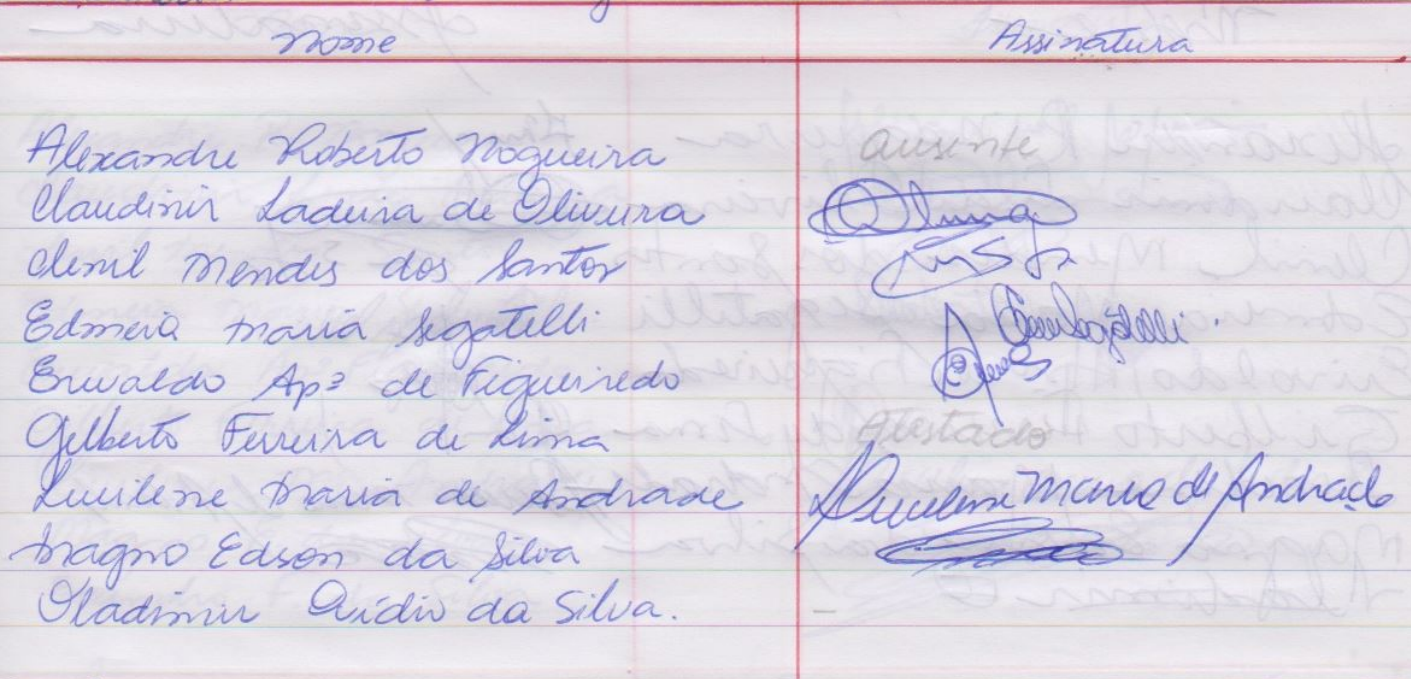 Nome Assinatura
Alexandre Roberto Nogueira ausente
Claudinir Ladeira de Oliveira
Clenil Mendes dos Santos
Edmeia Maria Segatelli
Erivaldo Apº de Figueiredo
Gilberto Ferreira de Lima Afastado
Lucilene Maria de Andrade Lucilene Maria de Andrade
Magno Edson da Silva
Vladimir Ovidio da Silva.